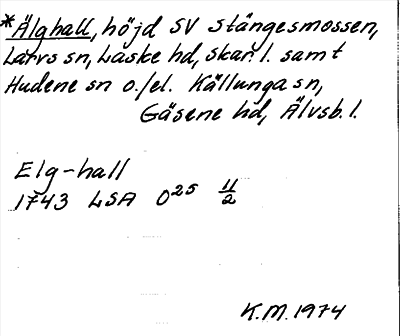 *Älghall, höjd SV Stångesmossen,
Larvs sn, Laske hd, Skar. l. samt
Hudene sn o./el. Källunga sn,
Gäsene hd, Älvsb. l.
Elg-hall
1743 LSA O²⁵ 11/2
K.M. 1974